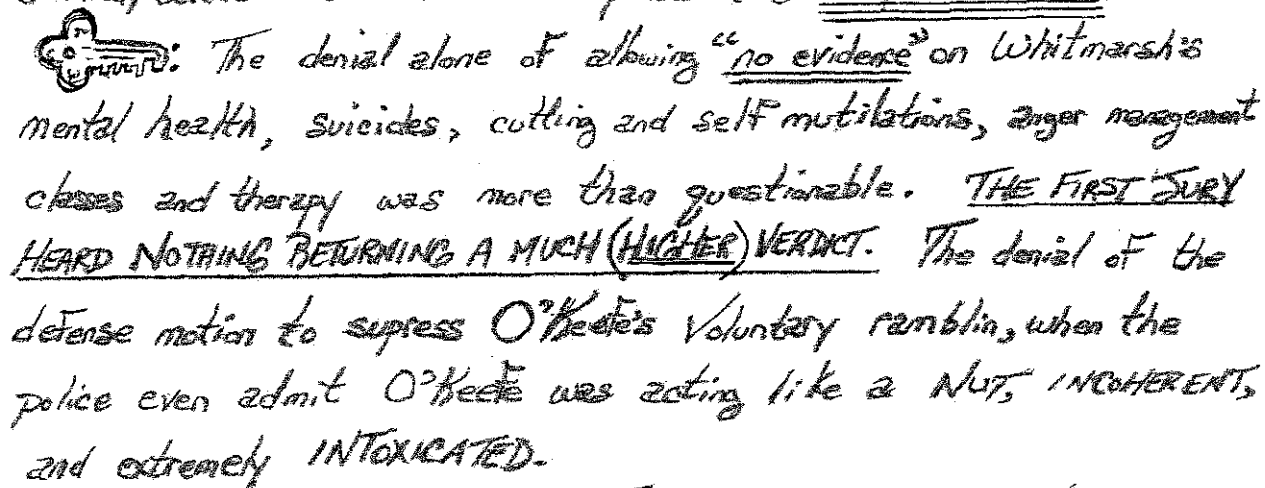 : The denial alone of allowing "no evidence" on Whitmarsh's
mental health, suicides, cutting and self mutilations, anger management
classes and therapy was more than questionable. THE FIRST JURY
HEARD NOTHING RETURNING A MUCH (HIGHER) VERDICT. The denial of the
defense motion to supress O'Keefe's voluntary ramblin, when the
police even admit O'Keefe was acting like a NUT, INCOHERENT,
and extremely INTOXICATED.